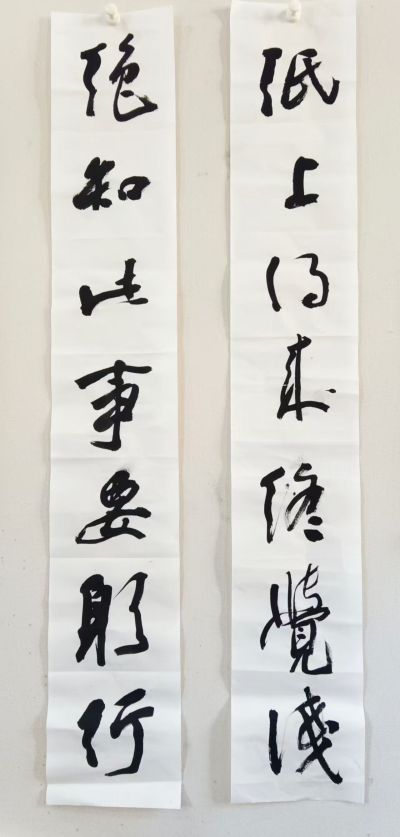 紙上得來終覺淺
絕知此事要躬行